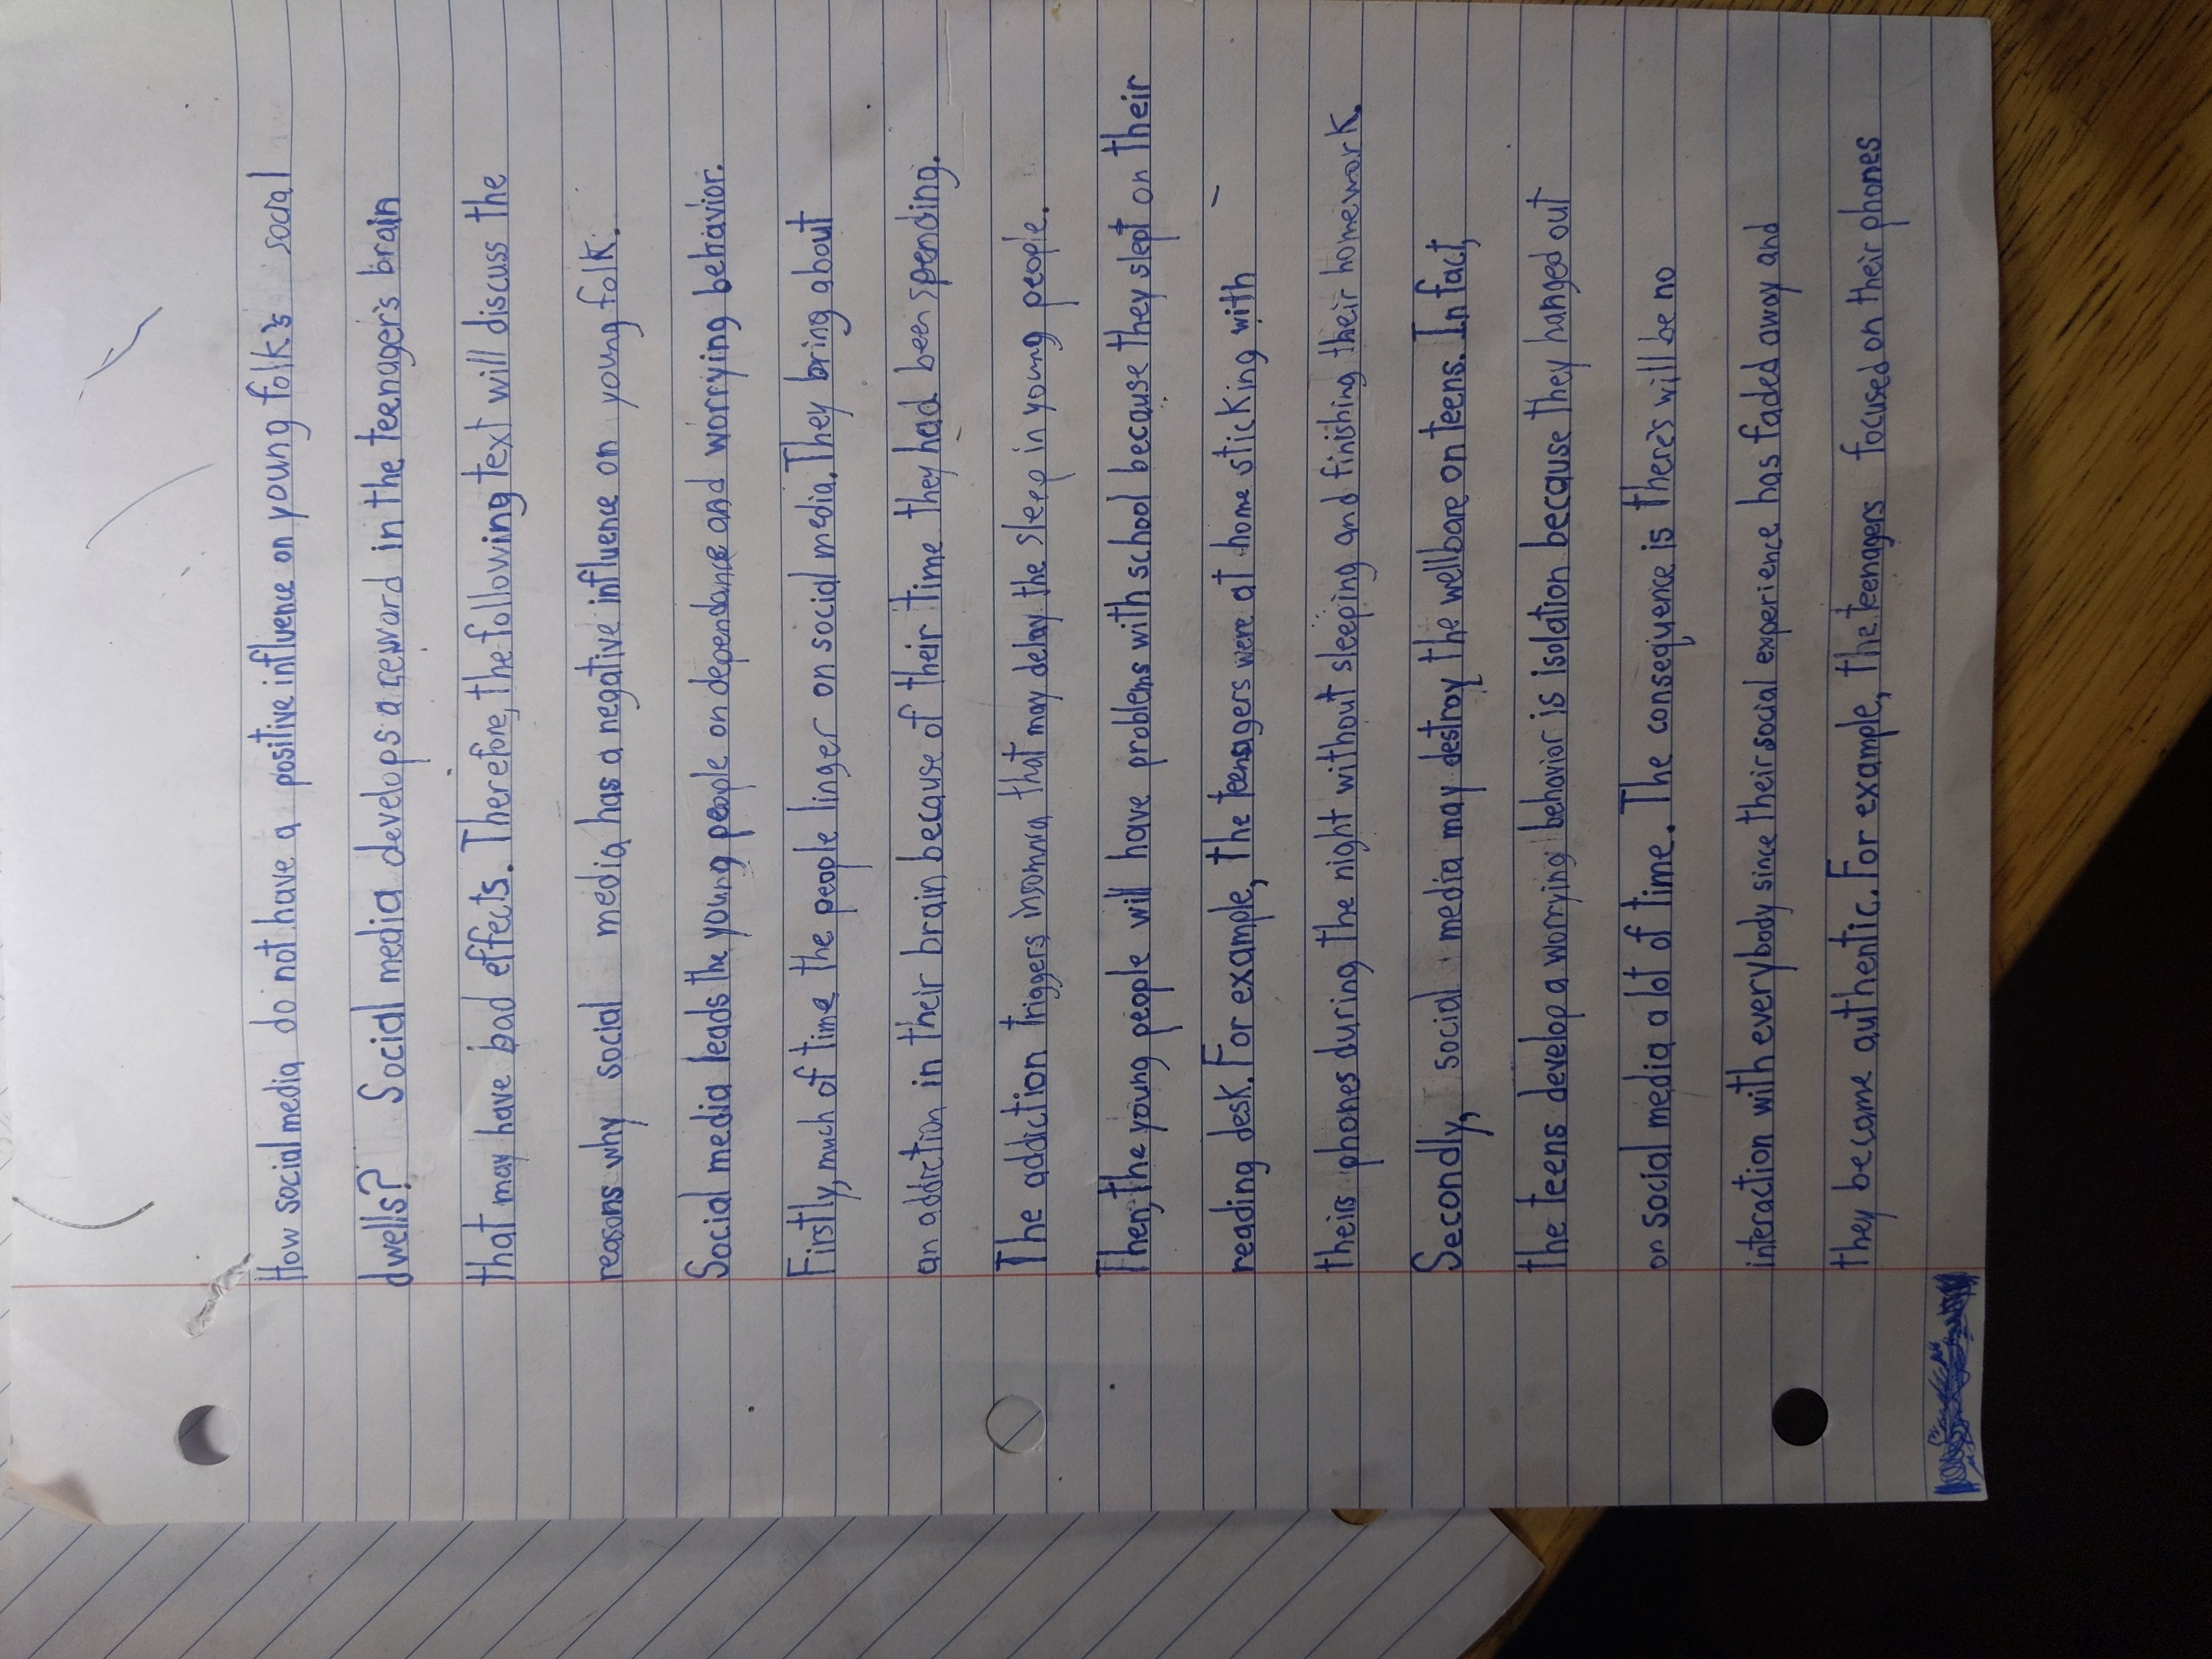 How social media do not have a positive influence on young folk's social
dwells? Social media develops a reward in the teenager's brain
that may have bad effects. Therefore, the following text will discuss the
reasons why social media has a negative influence on young folk.
Social media leads the young people on dependance and worrying behavior.
Firstly, much of time the people linger on social media. They bring about
an addiction in their brain because of their time they had been spending.
The addiction triggers insomnia that may delay the sleep in young people.
Then, the young people will have problems with school because they slept on their
reading desk. For example, the teenagers were at home sticking with
theirs phones during the night without sleeping and finishing their homework.
Secondly, social media may destroy the wellbare on teens. In fact,
the teens develop a worrying behavior is isolation because they hanged out
on social media a lot of time. The consequence is there's will be no
interaction with everybody since their social experience has faded away and
they became authentic. For example, the teenagers focused on their phones